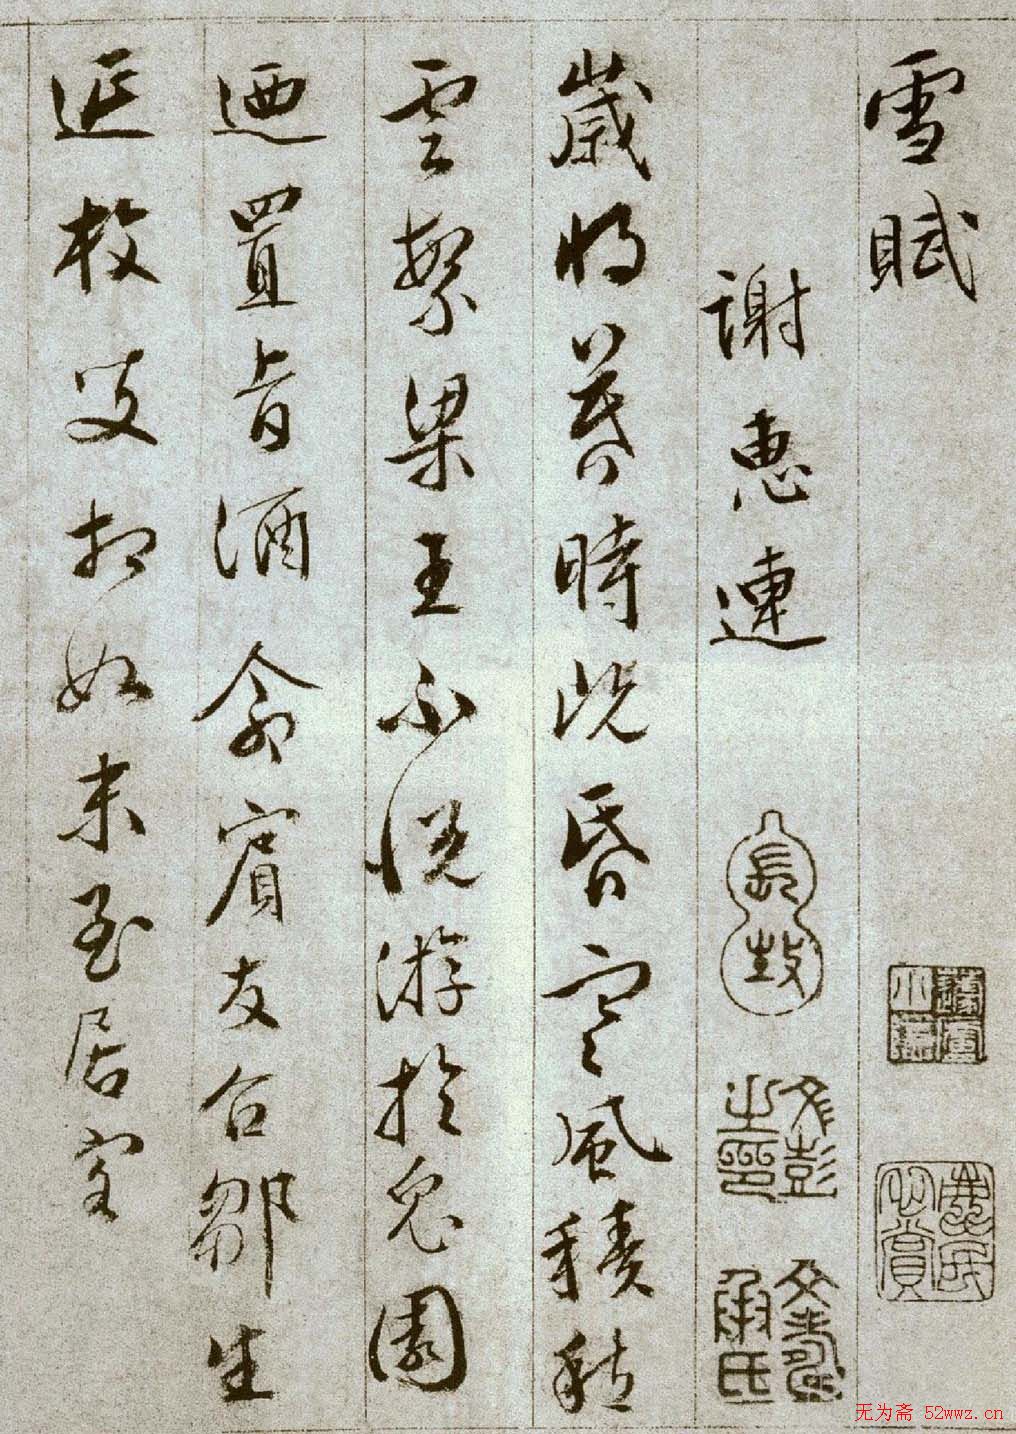 雪賦
謝惠連
文彭之印
文壽承氏
歲將暮時既昏寒風積愁
雲繁梁王不悅游於兔園
迺置旨酒命賓友召鄒生
延枚叟相如末至居客
无为斋 52wwz.cn